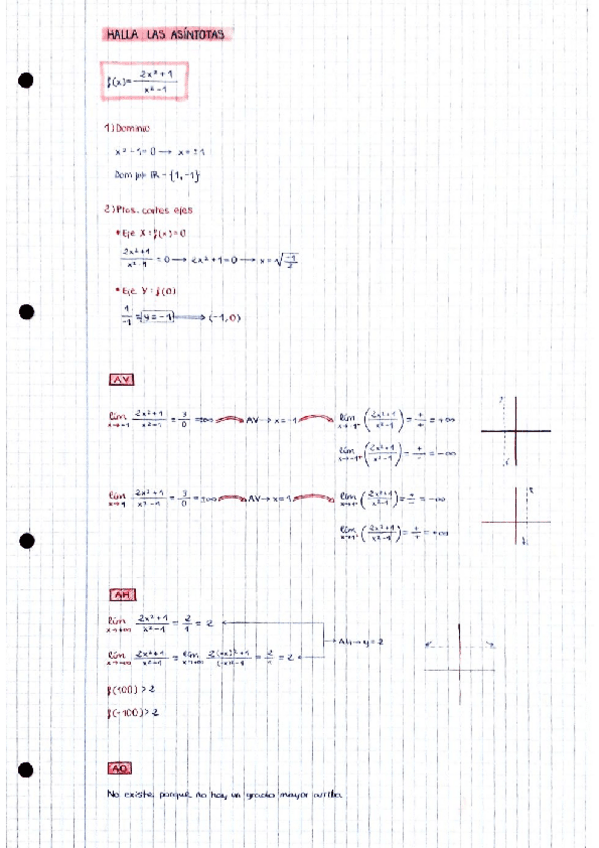 HALLA LAS ASÍNTOTAS
f(x)= (2x²+1)/(x²-1)
1) Dominio
x²-1=0 → x=±1
Dom f(x) ℝ - {1,-1}
2) Ptos. cortes ejes
• Eje X : f(x)=0
(2x²+1)/(x²-1) = 0 → 2x²+1=0 → x=√(-1/2)
• Eje Y : f(0)
1/-1 = y=-1 ⟹ (-1,0)
AV
lim x→-1 (2x²+1)/(x²-1) = 3/0 = ±∞ AV → x=-1 lim x→-1⁻ ((2x²+1)/(x²-1)) = +/+ = +∞
lim x→-1⁺ ((2x²+1)/(x²-1)) = +/- = -∞
lim x→1 (2x²+1)/(x²-1) = 3/0 = ±∞ AV → x=1 lim x→1⁻ ((2x²+1)/(x²-1)) = +/- = -∞
lim x→1⁺ ((2x²+1)/(x²-1)) = +/+ = +∞
AH
lim x→+∞ (2x²+1)/(x²-1) = 2/1 = 2
AH → y=2
lim x→-∞ (2x²+1)/(x²-1) = lim x→+∞ (2(-x)²+1)/((-x)²-1) = 2/1 = 2
f(100) > 2
f(-100) > 2
AO
No existe, porque no hay un grado mayor arriba.